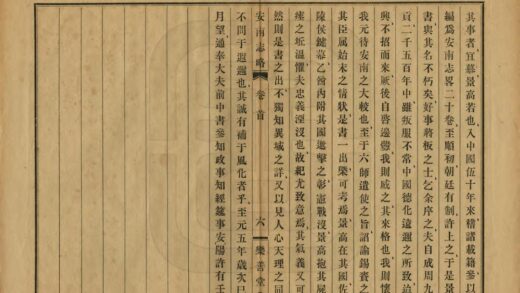 其事者宜慕景高若也入中國伍十年來稽諸載籍參以
編爲安南志畧二十卷至順初朝廷有制許上之于是景
書與其名不朽矣好事將板之士乞余序之夫自成周九
貢二千五百年中雖叛服不常中國德化遠邇之所致治
興不招而來厥後自啓邊釁我則威之其來格也我則懷
我元待安南之大較也至于六師遣使之旨詔諭錫賚之
其臣屬始末之情狀是書一出槩可考焉景高在其國佐
陵侯鍵幕乙酉內附其國邀擊之彰憲戰沒景高抱其屍
瘞之坵溫懼夫忠義湮沒也故紀尤致意焉其氣義又可
然則是書之出不獨知異域之詳又以見人心天理之同
安南志略 卷首 六 樂善堂
不間于遐邇也其誠有補于風化者乎至元五年歲次已
月望通奉大夫前中書參知政事知經筵事安陽許有壬